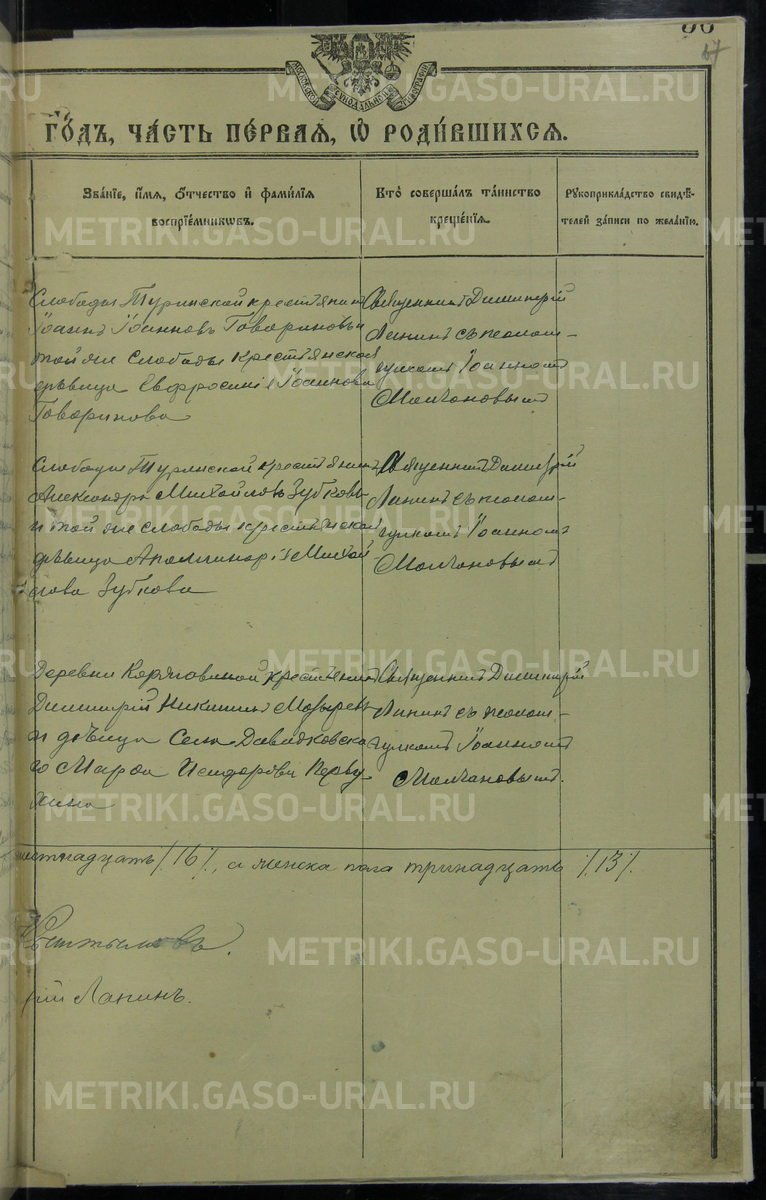 67
МОСКОВСКОЙ СѴНОДАЛЬНОЙ ТИПОГРАФІИ
го́дъ, ча́сть пе́рвая, ѡ҆ роди́вшихсѧ.
Зва́нїе, и҆́мѧ, ѻ҆́тчество и҆ фами́лїѧ
воспрїе́мникѡвъ.
Кто̀ соверша́лъ та́инство
креще́нїѧ.
Рꙋкоприкла́дство свидѣ́-
телей за́писи по жела́нїю.
Слободы Туринской крестьянинъ
Іоаннъ Іоанновъ Говориновъ и
той же слободы крестьянская
дѣвица Евфросинія Іоаннова
Говоринова
Священникъ Димитрій
Лапинъ съ псалом-
щикомъ Іоанномъ
Молчановымъ
Слободы Туринской крестьянинъ
Александръ Михайловъ Зубковъ
и той же слободы крестьянская
дѣвица Аполлинарія Михай
лова Зубкова
Священникъ Димитрій
Лапинъ съ псалом-
щикомъ Іоанномъ
Молчановымъ
Деревни Коряковиной крестьянинъ
Димитрій Никитинъ Мозыревъ
и дѣвица Села Давыдковска
го Марѳа Исидорова Перву
хина
Священникъ Димитрій
Лапинъ съ псалом-
щикомъ Іоанномъ
Молчановымъ.
шестнадцать /16/, а женска пола тринадцать /13/.
рій Лапинъ.
METRIKI.GASO-URAL.RU